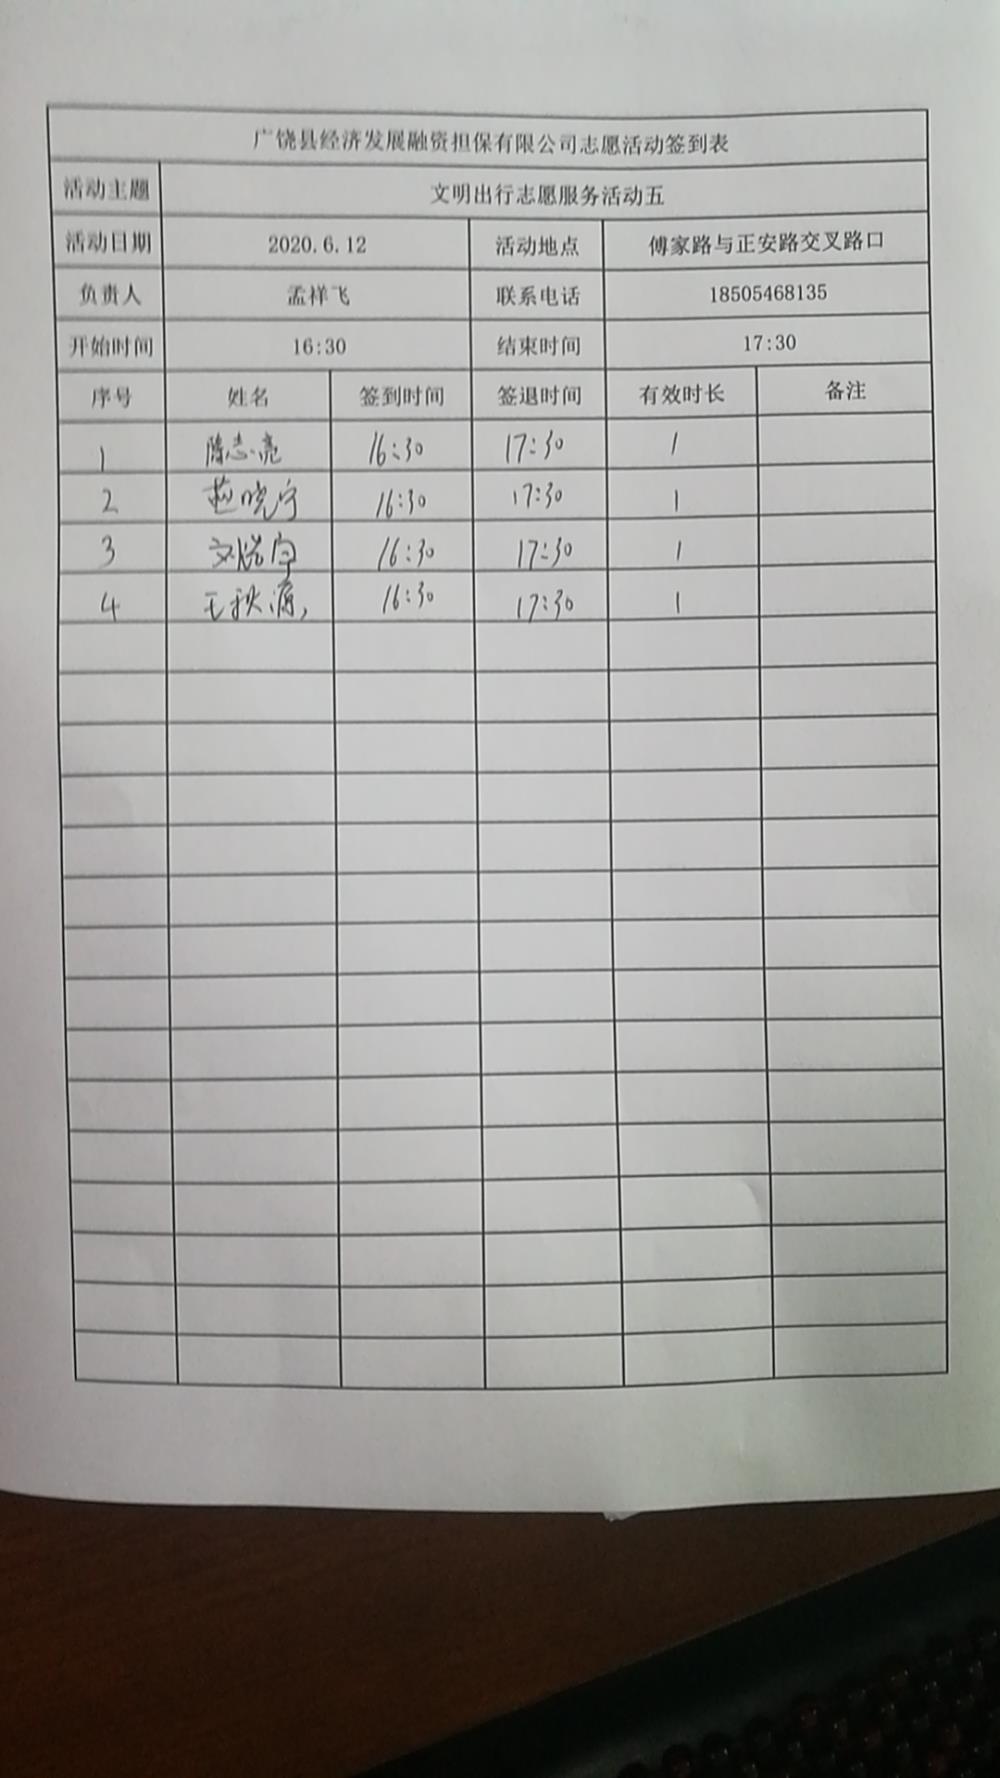 广饶县经济发展融资担保有限公司志愿活动签到表
活动主题 文明出行志愿服务活动五
活动日期 2020.6.12 活动地点 傅家路与正安路交叉路口
负责人 孟祥飞 联系电话 18505468135
开始时间 16:30 结束时间 17:30
序号 姓名 签到时间 签退时间 有效时长 备注
1 陈志亮 16:30 17:30 1
2 赵晓宁 16:30 17:30 1
3 16:30 17:30 1
4 王秋源 16:30 17:30 1